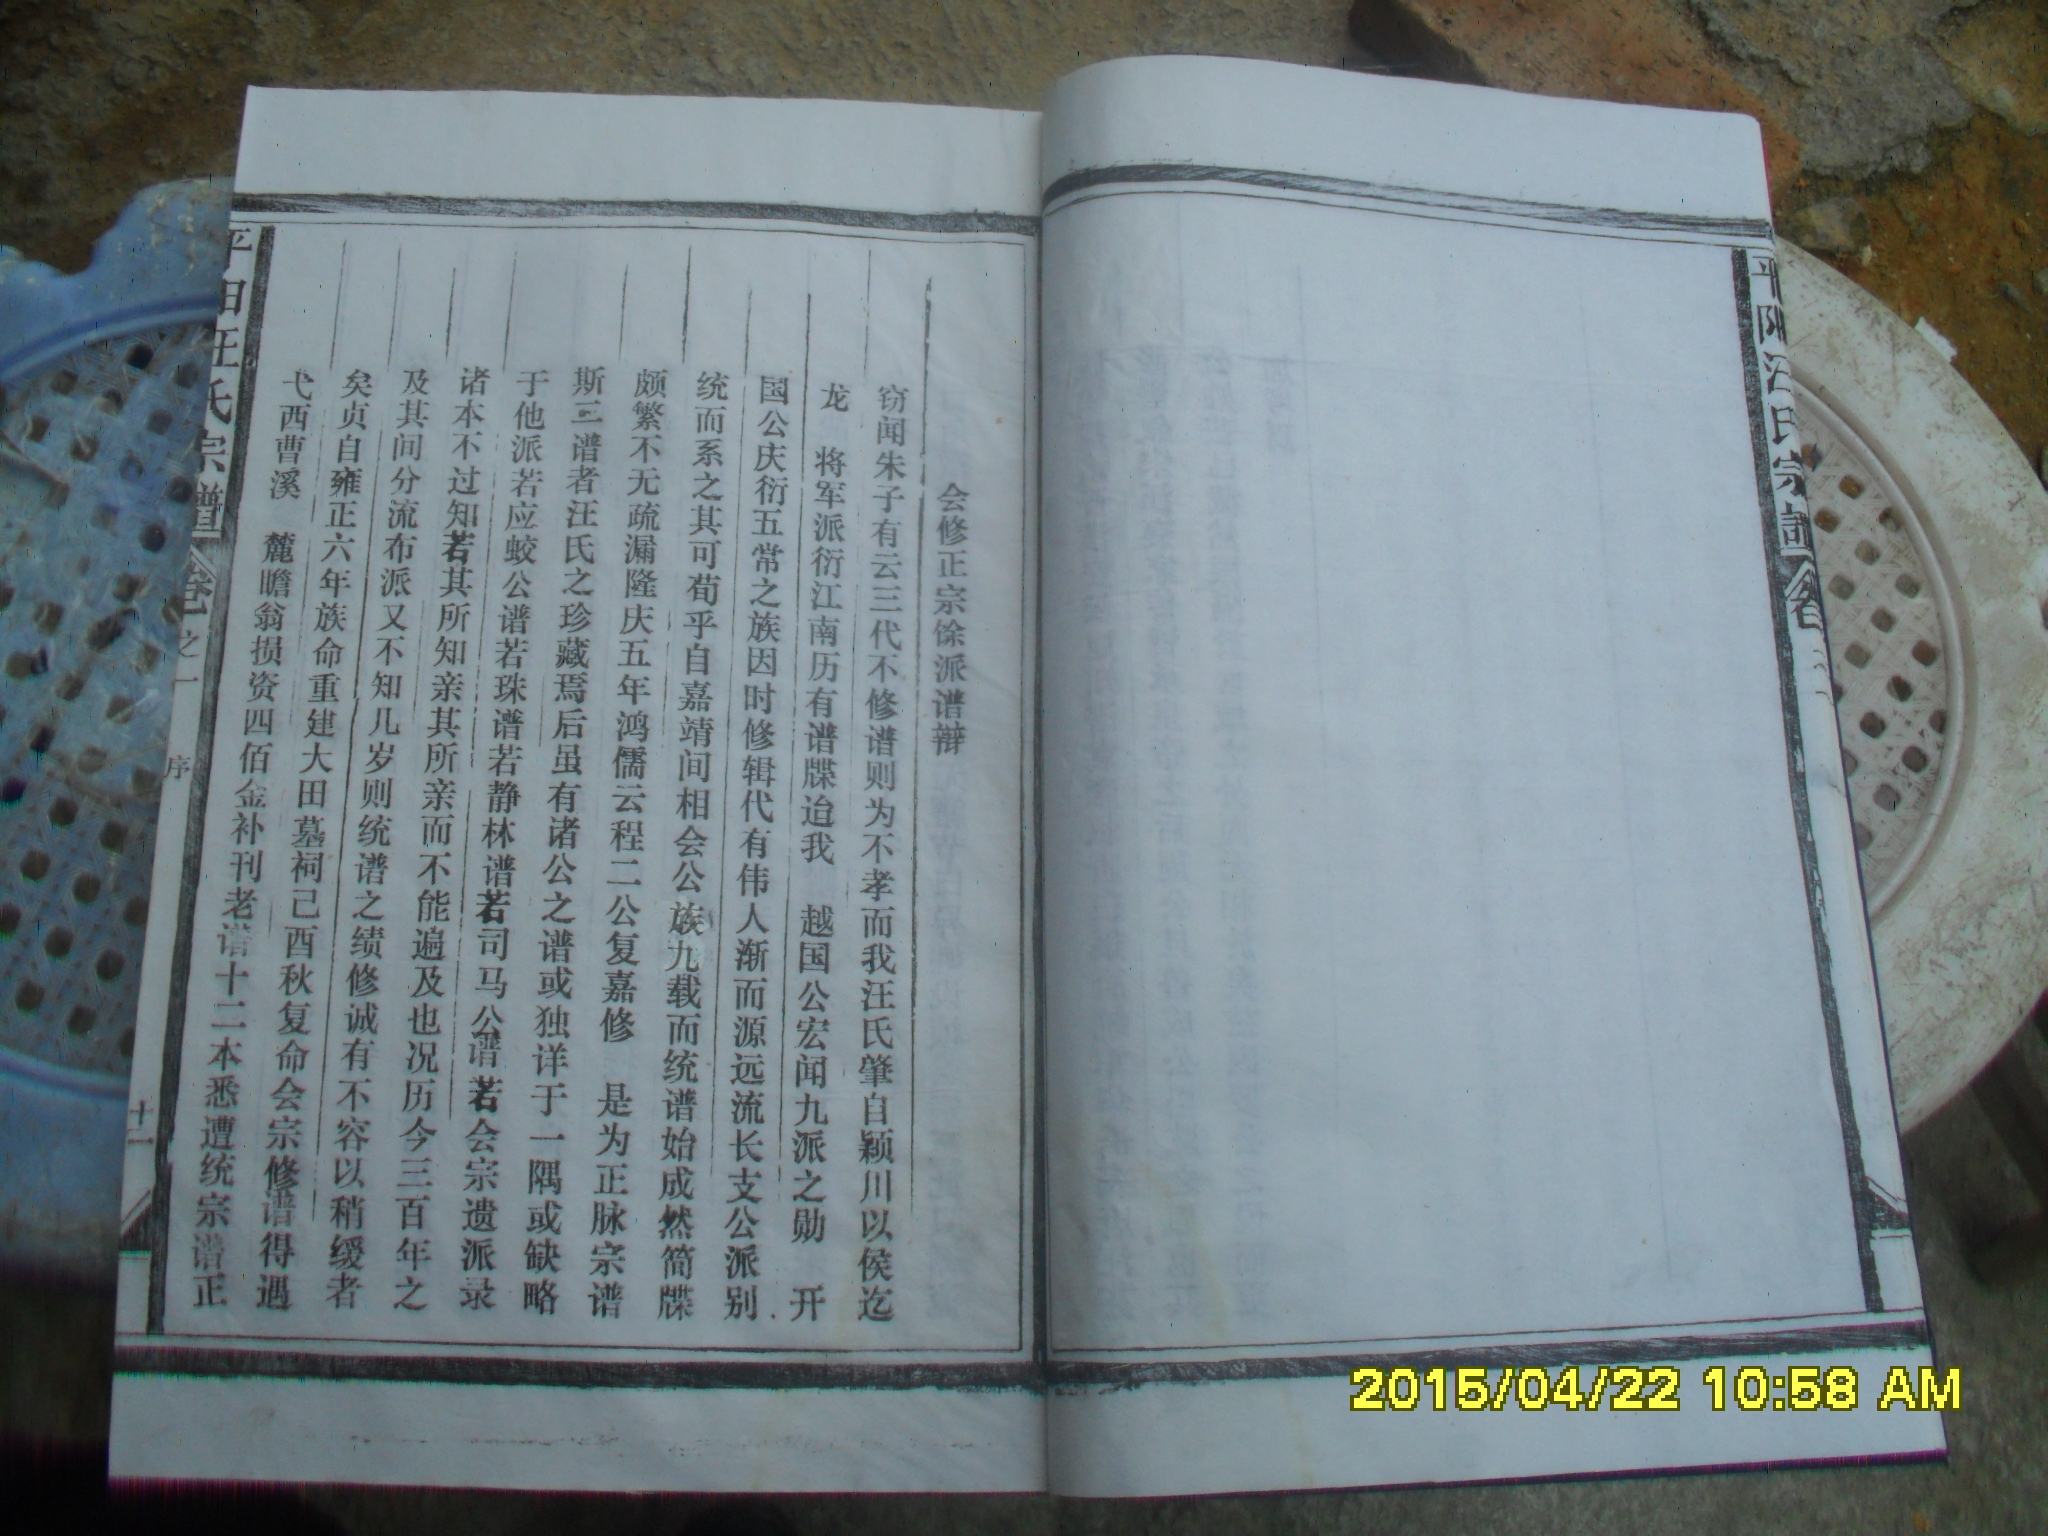 平阳汪氏宗谱
卷
会修正宗馀派谱辩
窃闻朱子有云三代不修谱则为不孝而我汪氏肇自颖川以侯迄
龙 将军派衍江南历有谱牒迨我 越国公宏闻九派之勋 开
国公庆衍五常之族因时修辑代有伟人渐而源远流长支公派别
统而系之其可荀乎自嘉靖间相会公族九载而统谱始成然简牒
颇繁不无疏漏隆庆五年鸿儒云程二公复嘉修 是为正脉宗谱
斯三谱者汪氏之珍藏焉后虽有诸公之谱或独详于一隅或缺略
于他派若应蛟公谱若珠谱若静林谱若司马公谱若会宗遗派录
诸本不过知若其所知亲其所亲而不能遍及也况历今三百年之
及其间分流布派又不知几岁则统谱之绩修诚有不容以稍缓者
矣贞自雍正六年族命重建大田墓祠己酉秋复命会宗修谱得遇
弋西曹溪 麓瞻翁损资四佰金补刊老谱十二本悉遭统宗谱正
平阳汪氏宗谱
卷之一
序
十一
2015/04/22 10:58 AM